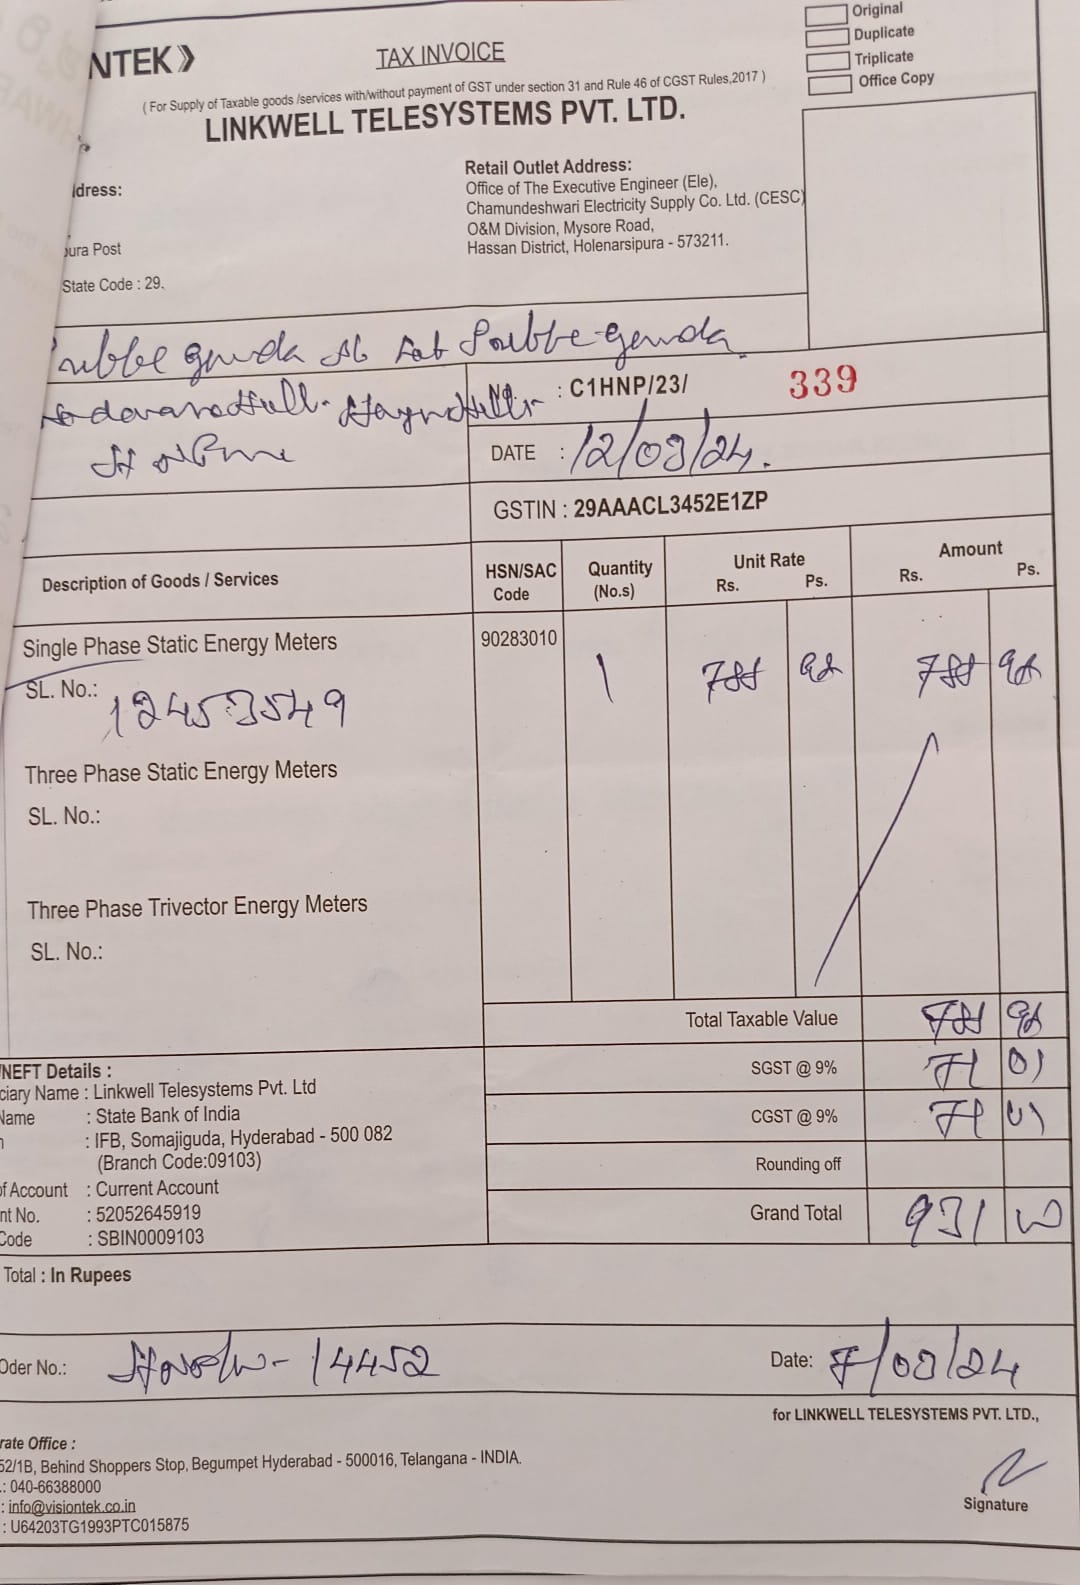 NTEK
TAX INVOICE
Original
Duplicate
Triplicate
Office Copy
( For Supply of Taxable goods /services with/without payment of GST under section 31 and Rule 46 of CGST Rules,2017 )
LINKWELL TELESYSTEMS PVT. LTD.
dress:
pura Post
State Code : 29.
Retail Outlet Address:
Office of The Executive Engineer (Ele),
Chamundeshwari Electricity Supply Co. Ltd. (CESC)
O&M Division, Mysore Road,
Hassan District, Holenarsipura - 573211.
No. : C1HNP/23/ 339
DATE : 12/03/24.
GSTIN : 29AAACL3452E1ZP
Description of Goods / Services HSN/SAC Code Quantity (No.s) Unit Rate Rs. Ps. Amount Rs. Ps.
Single Phase Static Energy Meters 90283010 1 788 98 788 98
SL. No.: 12453549
Three Phase Static Energy Meters
SL. No.:
Three Phase Trivector Energy Meters
SL. No.:
Total Taxable Value 788 98
SGST @ 9% 71 01
CGST @ 9% 71 01
Rounding off
Grand Total 931 00
NEFT Details :
ciary Name : Linkwell Telesystems Pvt. Ltd
Name : State Bank of India
: IFB, Somajiguda, Hyderabad - 500 082
(Branch Code:09103)
of Account : Current Account
nt No. : 52052645919
Code : SBIN0009103
Total : In Rupees
Oder No.: 14452 Date: 7/03/24
for LINKWELL TELESYSTEMS PVT. LTD.,
rate Office :
52/1B, Behind Shoppers Stop, Begumpet Hyderabad - 500016, Telangana - INDIA.
.: 040-66388000
: info@visiontek.co.in
: U64203TG1993PTC015875
Signature